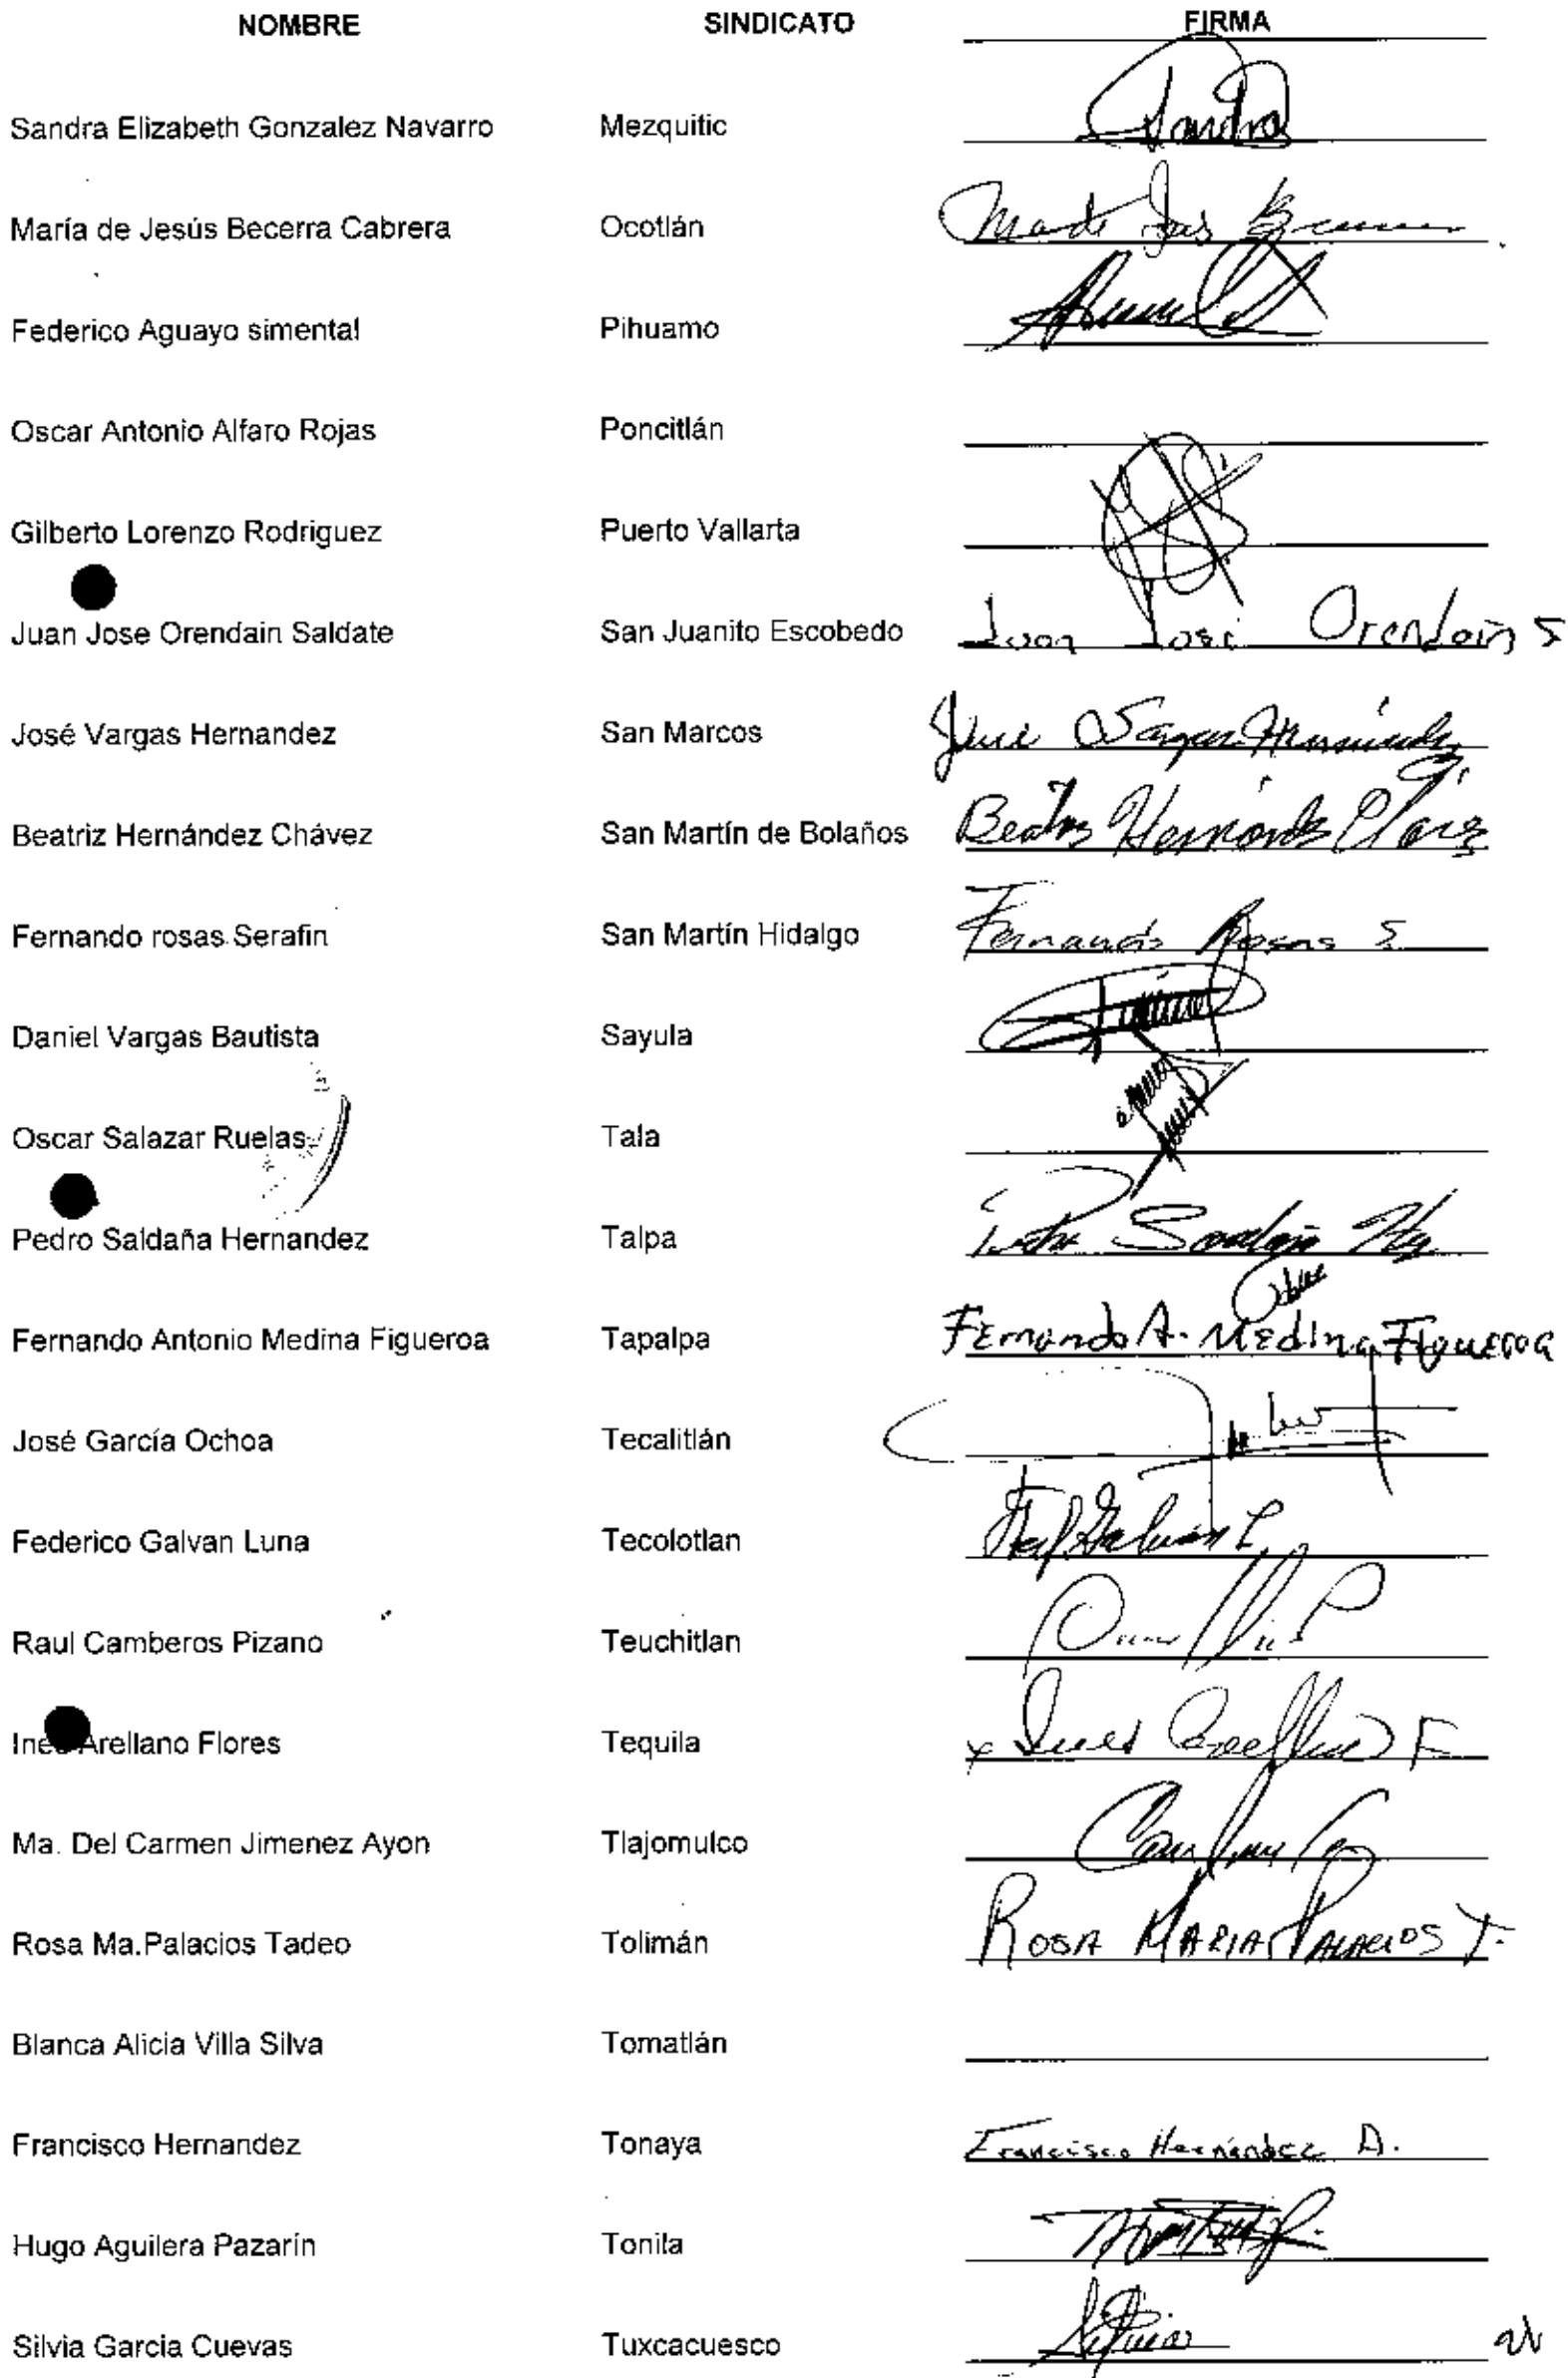 NOMBRE SINDICATO FIRMA
Sandra Elizabeth Gonzalez Navarro Mezquitic Sandra
María de Jesús Becerra Cabrera Ocotlán Ma de Jes
Federico Aguayo simental Pihuamo
Oscar Antonio Alfaro Rojas Poncitlán
Gilberto Lorenzo Rodriguez Puerto Vallarta
Juan Jose Orendain Saldate San Juanito Escobedo Juan Jose Orendain S
José Vargas Hernandez San Marcos José Vargas Hernández
Beatriz Hernández Chávez San Martín de Bolaños Beatriz Hernández Chávez
Fernando rosas Serafin San Martín Hidalgo Fernando Rosas S
Daniel Vargas Bautista Sayula
Oscar Salazar Ruelas Tala
Pedro Saldaña Hernandez Talpa Pedro Saldaña Hdz
Fernando Antonio Medina Figueroa Tapalpa Fernando A. Medina Figueroa
José García Ochoa Tecalitlán
Federico Galvan Luna Tecolotlan Fed Galván L
Raul Camberos Pizano Teuchitlan
Ines Arellano Flores Tequila x Ines Arellano F
Ma. Del Carmen Jimenez Ayon Tlajomulco
Rosa Ma.Palacios Tadeo Tolimán ROSA MARIA PALACIOS T.
Blanca Alicia Villa Silva Tomatlán
Francisco Hernandez Tonaya Francisco Hernández D.
Hugo Aguilera Pazarín Tonila
Silvia Garcia Cuevas Tuxcacuesco Silvia